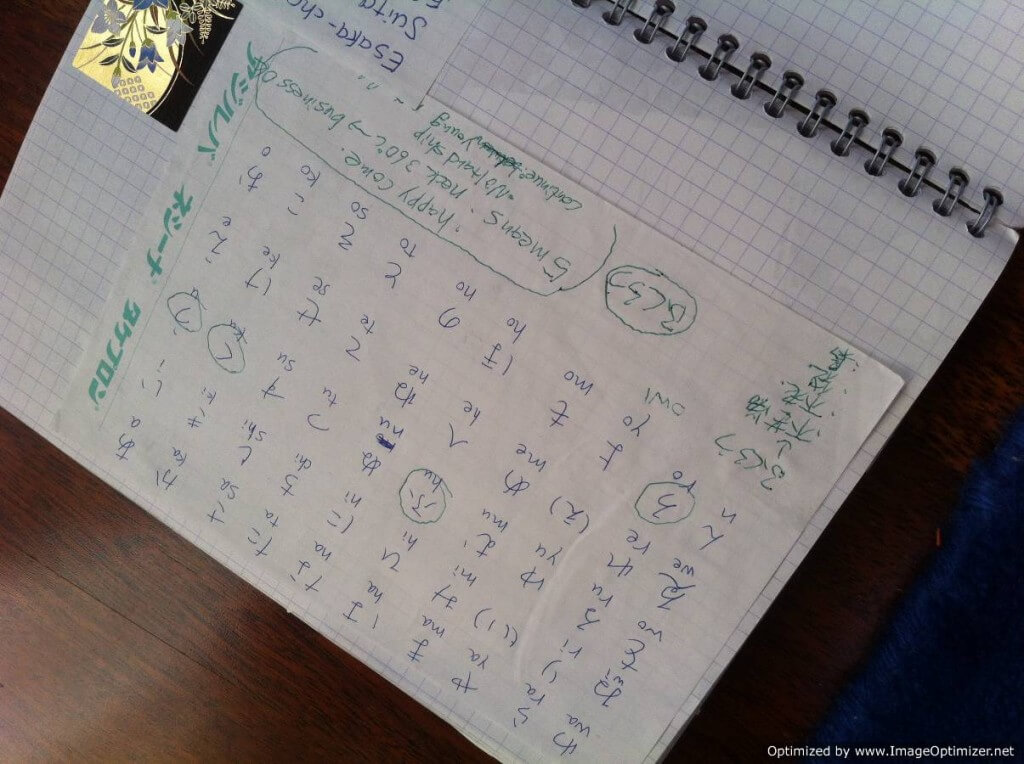 わ ら や ま は な た さ か あ
wa ra ya ma ha na ta sa ka a
ゐ り (い) み ひ に ち し き い
wi ri mi hi ni chi shi ki i
を る ゆ む ふ ぬ つ す く う
wo ru yu mu hu nu tu su ku u
ゑ れ (え) め へ ね て せ け え
we re me he ne te se ke e
ん ろ よ も ほ の と そ こ お
n ro yo mo ho no to so ko o
owl
ふくろう
不苦労
不老
ふくろう
5 means : happy come.
neck 360° → business
No hard ship
continue young
アジルバ ネシーナ タケプロン
Esaka-cho
Suita